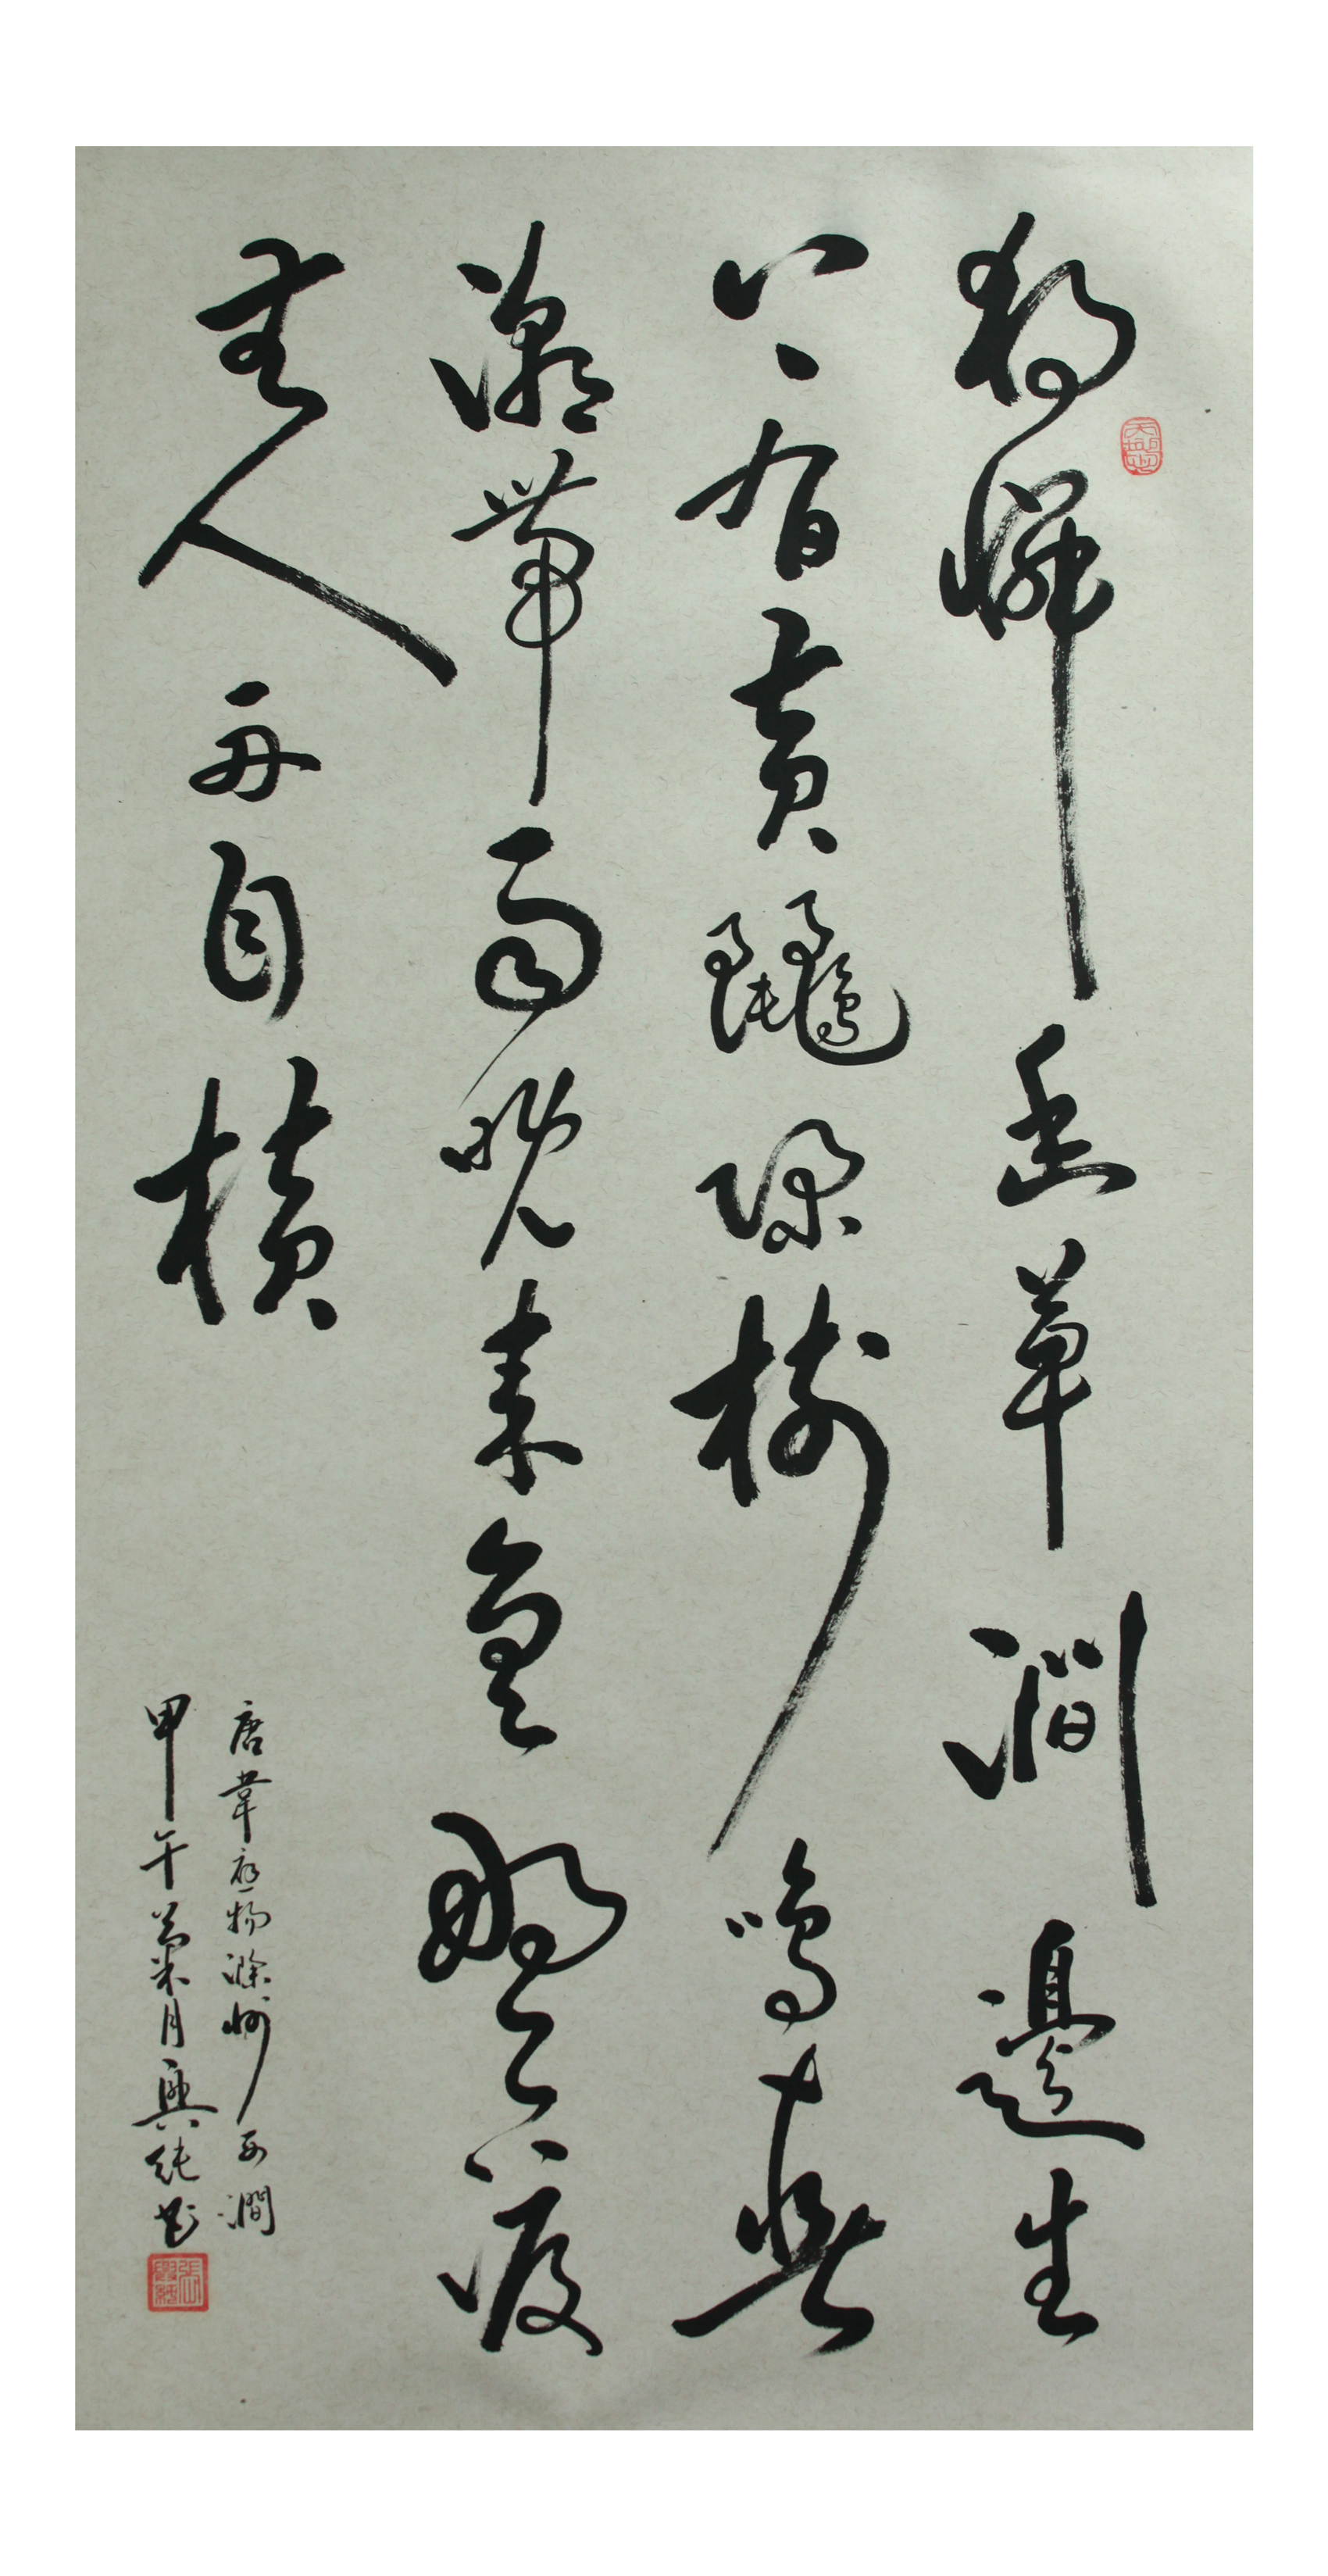 獨憐幽草澗邊生
上有黃鸝深樹鳴春
潮帶雨晚来急野渡
無人舟自橫
唐韋應物滁州西澗
甲午菊月興純書
張興純